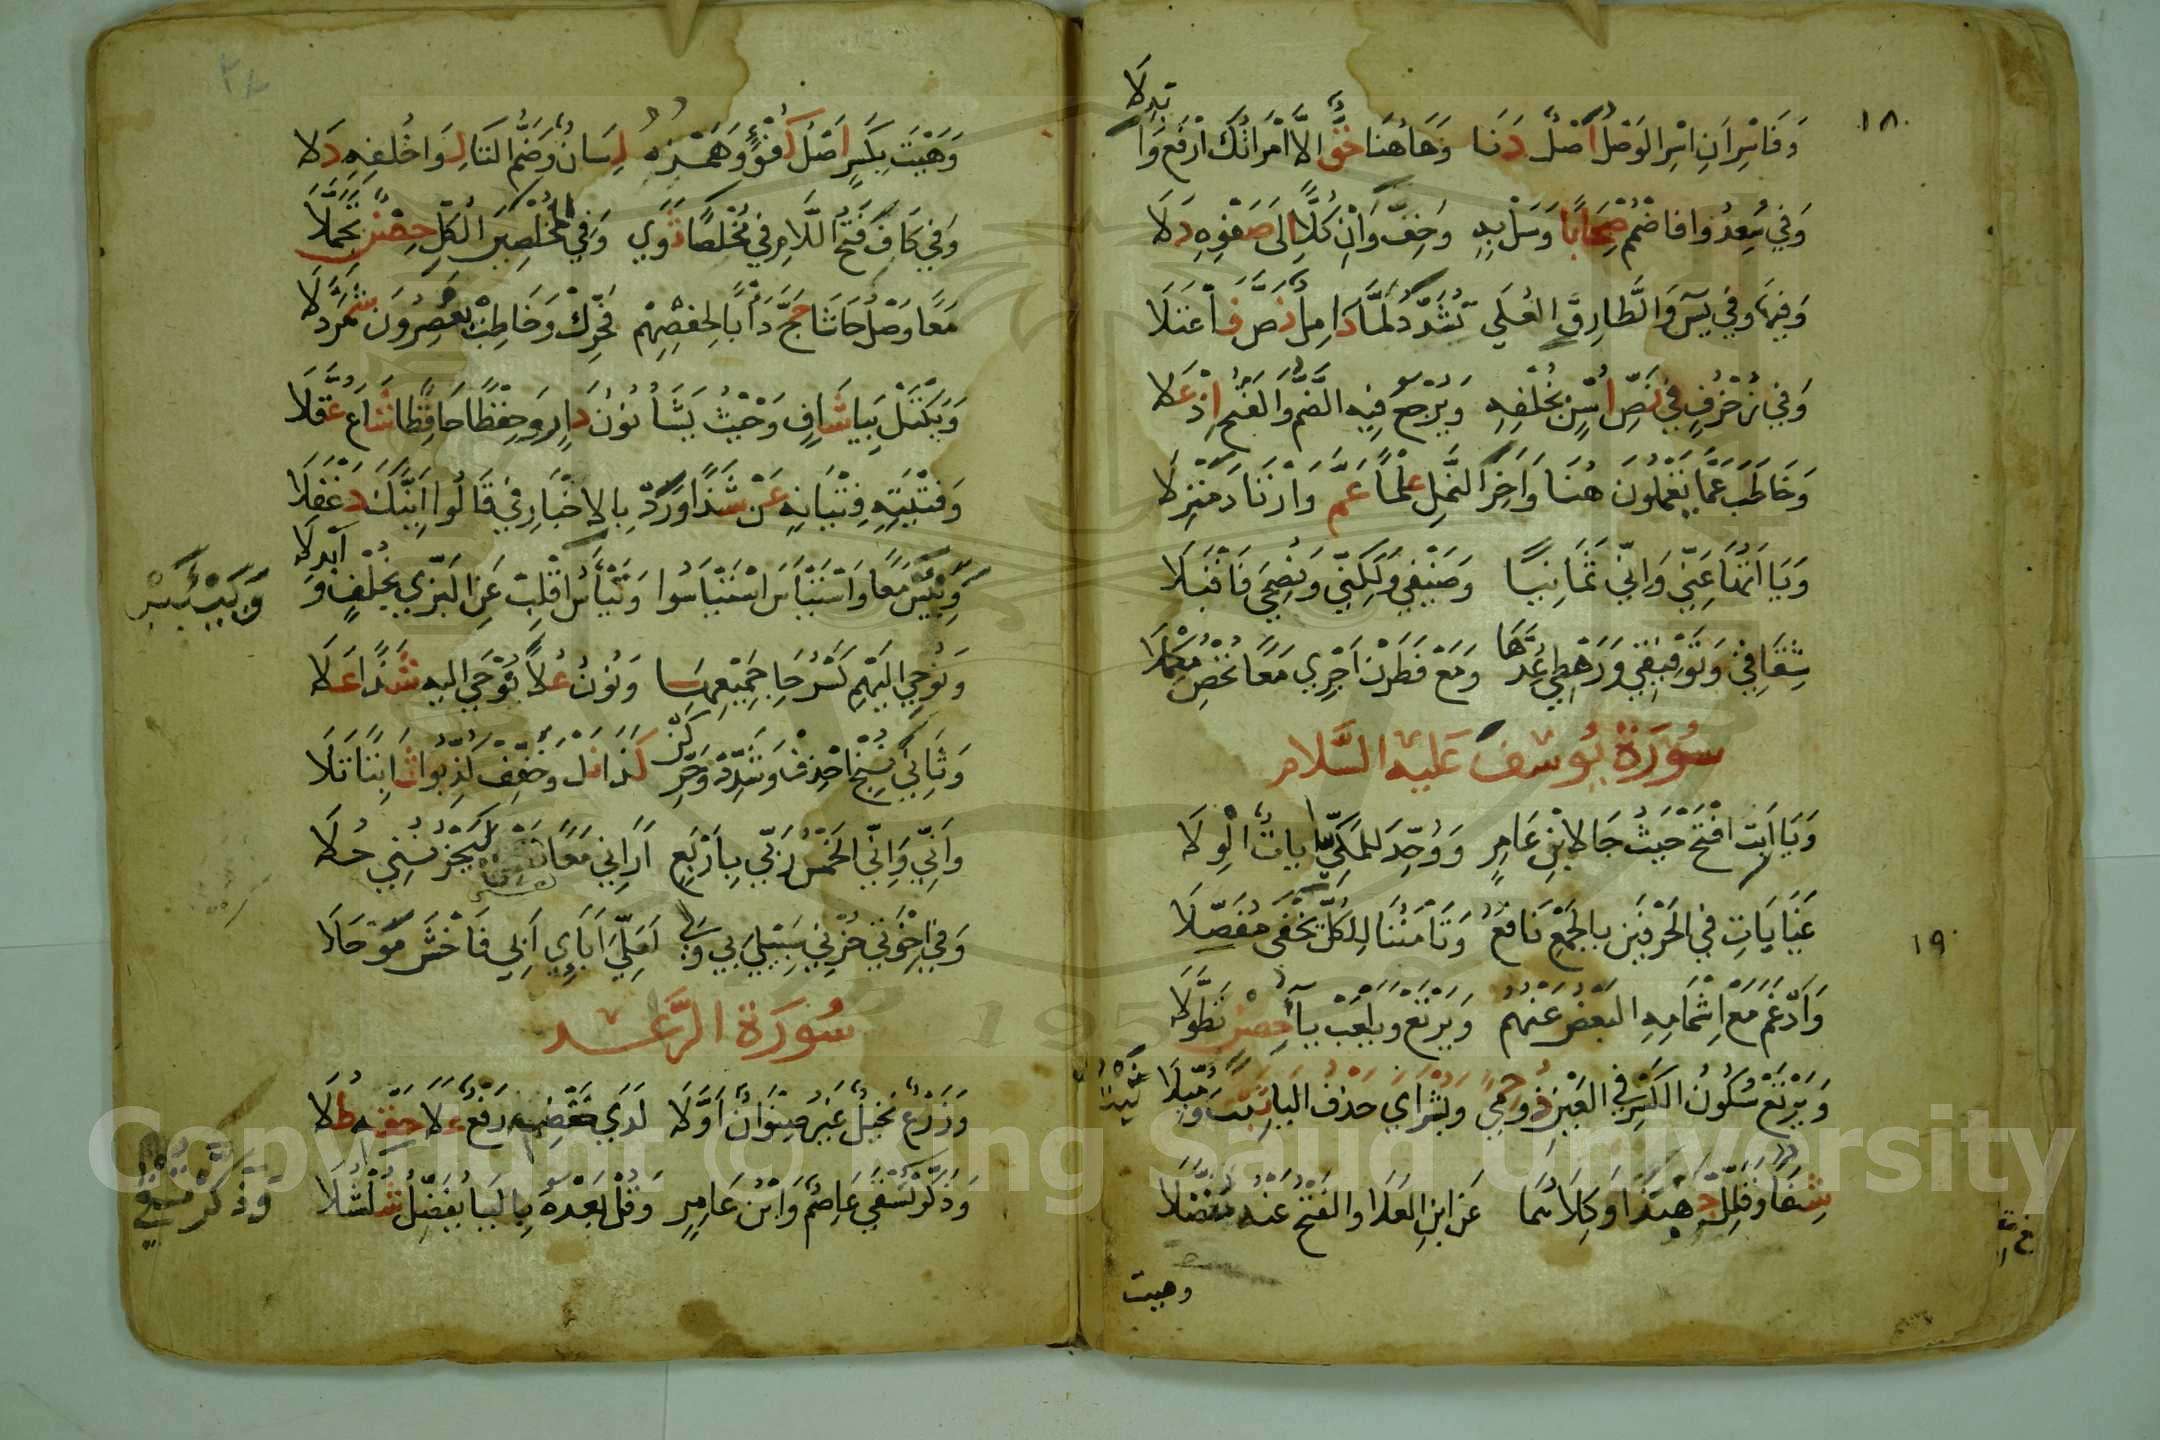 ١٨
وَفَاسْرِ اَنِ اسْرِ الوَصْلُ اَصْلٌ دَنَا وَهَاهُنَا حَقٌّ اِلاَّ امْرَاتُكَ ارْفَعْ وَا
بْدِلَا
وَفِي سُعِدُوا فَاضْمُمْ صِحَابًا وَسَلْ بِهِ وَخِفُّ وَاِنْ كُلًّا اِلَى صَفْوِهِ دَلَا
وَفِيهَا وَفِي يسٓ وَالطَّارِقِ العُلَى يُشَدِّدُ لَمَّا كَامِلٌ نَصَّ فَاعْتَلَا
وَفِي زُخْرُفٍ فِي نَصِّ لُسْنٍ بِخُلْفِهِ وَيَرْجِعُ فِيهِ الضَّمُّ وَالفَتْحُ اِذْ عَلَا
وَخَاطَبَ عَمَّا يَعْمَلُونَ هُنَا وَآخِرَ النَّمْلِ عِلْمًا عَمَّ وَارْتَادَ مَنْزِلَا
وَيَا اَتُهَا عَنِّي وَاِنِّي ثَمَانِيًا وَضَيْفِي وَلَكِنِّي وَنُصْحِي فَاقْبَلَا
شِقَاقِي وَتَوْفِيقِي وَرَهْطِي عُدَّهَا وَمَعْ فَطَرَنْ اَجْرِي مَعًا تُحْصِ مُكْمِلَا
سُورَةُ يُوسُفَ عَلَيْهِ السَّلَام
وَيَا اَبَتِ افْتَحْ حَيْثُ جَا لِابْنِ عَامِرٍ وَوُحِّدَ لِلمَكِّيِّ اٰيَاتٌ الْوِلَا
١٩
غَيَابَاتِ فِي الحَرْفَيْنِ بِالجَمْعِ نَافِعٌ وَتَأْمَنُنَا لِلْكُلِّ يُخْفَى مُفَصَّلَا
وَاَدْغَمَ مَعْ اِشْمَامِهِ البَعْضُ عَنْهُمُ وَيَرْتَعْ وَيَلْعَبْ يَاءُ حِصْنٍ تَطَوَّلَا
وَيَرْتَعْ سُكُونُ الكَسْرِ فِي العَيْنِ ذُو حِمًى وَبُشْرَايَ حَذْفُ اليَاءِ ثَبْتٌ وَمُيِّلَا
شِفَاءً وَقَلِّلْ جِهْبِذًا وَكِلَاهُمَا عَنِ ابْنِ العَلَا وَالفَتْحُ عَنْهُ تَفَضَّلَا
وهيت
وَهَيْتَ بِكَسْرٍ اَصْلُ كُفْؤٍ وَهَمْزُهُ لِسَانٌ وَضَمُّ التَّا لِوَا خُلْفِهِ دَلَا
وَفِي كَافَ فَتْحُ اللَّامِ فِي مُخْلَصًا ثَوَى وَفِي المُخْلَصِينَ الْكُلُّ حِصْنٌ تَجَمَّلَا
مَعًا وَصْلُ حَاشَا حَجَّ دَأْبًا لِحَفْصِهِمْ فَحَرِّكْ وَخَاطِبْ تَعْصِرُونَ شَمَرْدَلَا
وَيَكْتَلْ بِيَا شَافٍ وَحَيْثُ يَشَاءُ نُونُ دَارٍ وَحِفْظًا حَافِظًا شَاعَ عُقَّلَا
وَفِتْيَتِهِ فِتْيَانِهِ عَنْ شَذًا وَرُدْ بِالاِخْبَارِ فِي قَالُوا اَئِنَّكَ دَغْفَلَا
وَيَيْأَسْ مَعًا وَاسْتَيْأَسَ اسْتَيْأَسُوا وَتَيْأَسُ اقْلِبْ عَنِ البَزِّي بِخُلْفٍ وَ
اَبْدِلَا
وَيَيْأَسْ
وَنُوحِي اِلَيْهِمْ كَسْرُ حَا جَمِيعِهَا وَنُونٌ عُلًا يُوحَى اِلَيْهِ شَذًا عَلَا
وَثَانِيَ نُنْجِ احْذِفْ وَشَدِّدْ وَحَرِّكَنْ كَذَا نَلْ وَخَفِّفْ كُذِّبُوا ثَابِتًا تَلَا
وَاَنِّي وَاِنِّي الخَمْسُ رَبِّي بِاَرْبَعٍ اَرَانِي مَعًا لَيَحْزُنُنِي حُلَا
وَفِي اِخْوَتِي حُزْنِي سَبِيلِيَ بِي وَلِي لَعَلِّي اَبَائِي اَبِي فَاخْشَ مَوْحَلَا
سُورَةُ الرَّعْد
وَزَرْعٌ نَخِيلٌ غَيْرُ صِنْوَانٌ اَوَّلَا لَدَى خَفْضِهَا رَفْعٌ عَلَا حَقُّهُ طُلَا
وَذَكَّرَ تُسْقَى عَاصِمٌ وَابْنُ عَامِرٍ وَقُلْ بَعْدَهُ بِاليَا يُفَضِّلُ شُلْشُلَا
وَذَكَّرَ تُسْقَى